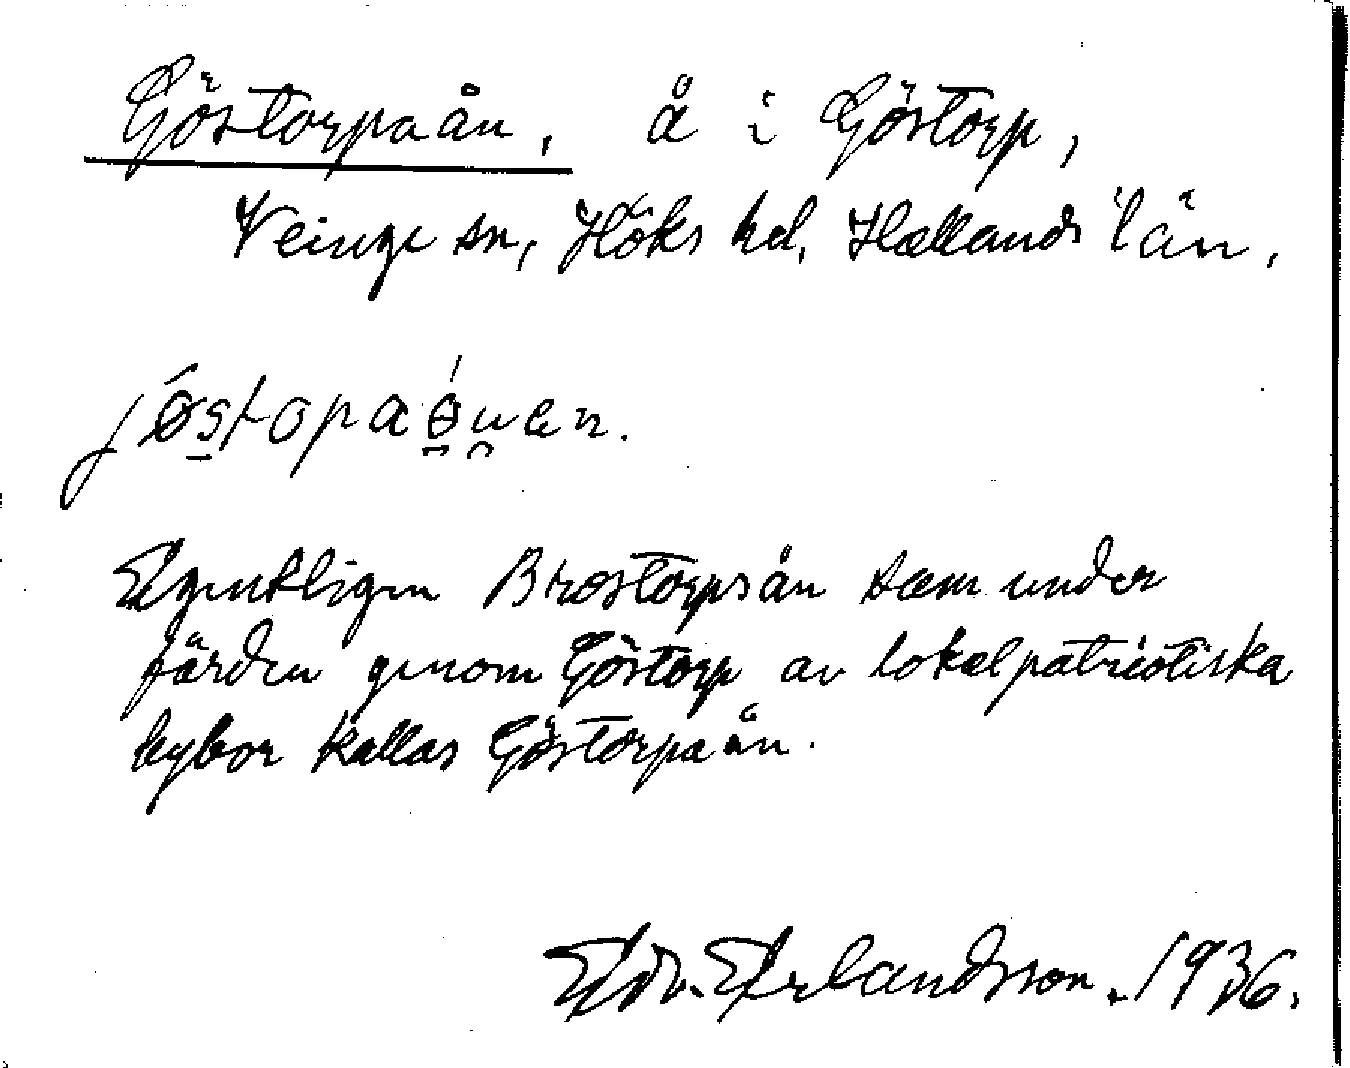 Göstorpaån, å i Göstorp,
Veinge sn, Höks hd, Hallands län,
jøstopaəuen.
Egentligen Brostorpsån som under
färden genom Göstorp av lokalpatriotiska
bybor kallas Göstorpaån.
Edv. Erlandsson. 1936.